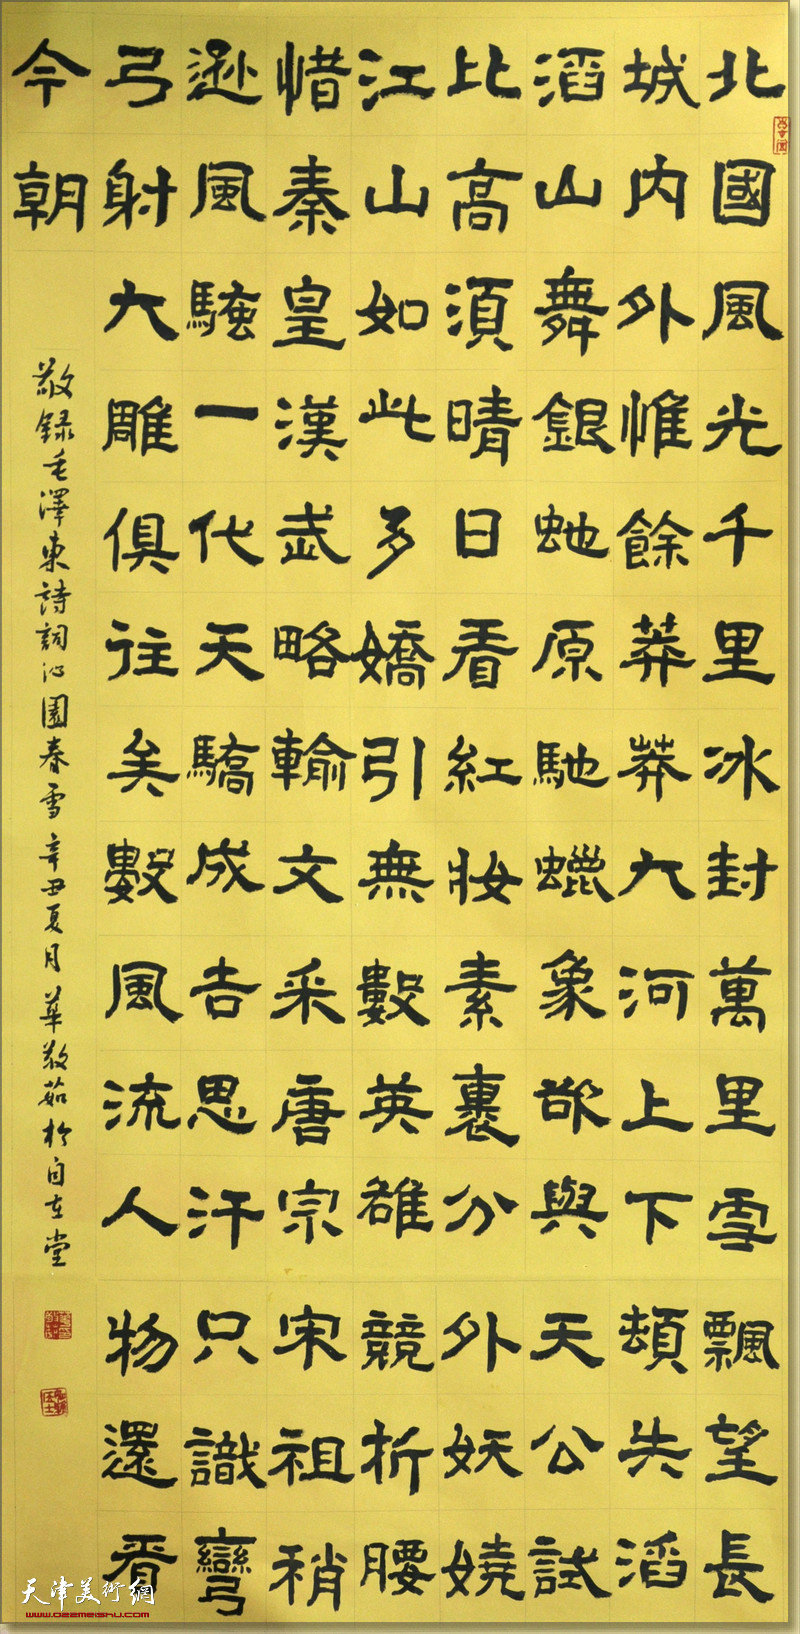 北國風光千里冰封萬里雪飄望長
城内外惟餘莽莽大河上下頓失滔
滔山舞銀虵原馳蠟象欲與天公試
比高須晴日看紅妝素裹分外妖嬈
江山如此多嬌引無數英雄競折腰
惜秦皇漢武略輸文采唐宗宋祖稍
遜風騷一代天驕成吉思汗只識彎
弓射大雕俱往矣數風流人物還看
今朝
敬録毛澤東詩詞沁園春雪辛丑夏月華敬茹於自在堂
天津美術網
www.022meishu.com